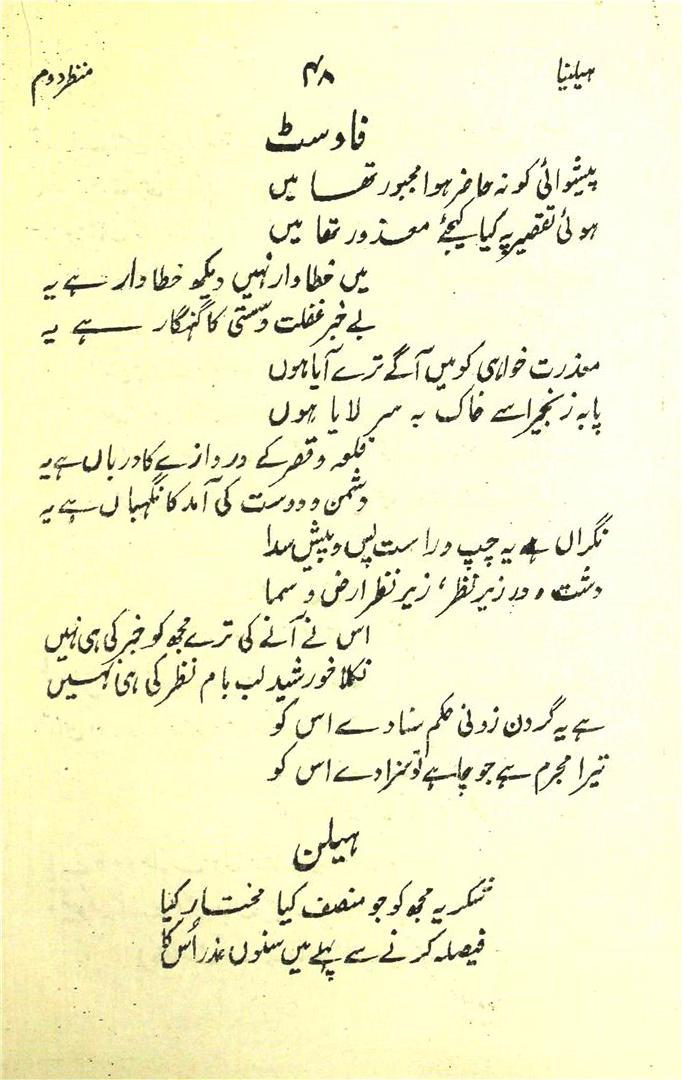 ہیلینا ۴۸ منظر دوم
فاوسٹ
پیشوائی کو نہ حاضر ہوا مجبور تھا میں
ہوئی تقصیر پہ کیا کیجئے معذور تھا میں
میں خطا دار نہیں دیکھو خطا دار ہے یہ
بے خبر غفلت و سستی کا گنہگار ہے یہ
معذرت خواہی کو میں آگے ترے آیا ہوں
پا بہ زنجیر اسے خاک بہ سر لایا ہوں
قلعہ و قصر کے دروازے کا درباں ہے یہ
دشمن و دوست کی آمد کا نگہباں ہے یہ
نگراں ہے یہ چپ و راست پس و پیش سدا
دشت و در زیر نظر، زیر نظر ارض و سما
اس نے آنے کی ترے مجھ کو خبر کی ہی نہیں
نکلا خورشید لب بام نظر کی ہی نہیں
ہے یہ گردن زدنی حکم سنا دے اس کو
تیرا مجرم ہے جو چاہے تو سزا دے اس کو
ہیلن
شکریہ مجھ کو جو منصف کیا مختار کیا
فیصلہ کرنے سے پہلے میں سنوں عذر اُس کا